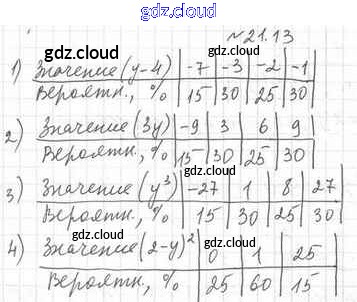 gdz.cloud
№21.13
gdz.cloud gdz.cloud
1) Значение (y-4) | -7 | -3 | -2 | -1 |
Вероятн., % | 15 | 30 | 25 | 30 |
gdz.cloud gdz.cloud
2) Значение (3y) | -9 | 3 | 6 | 9 |
Вероятн., % | 15 | 30 | 25 | 30 |
gdz.cloud gdz.cloud
3) Значение (y³) | -27 | 1 | 8 | 27
Вероятн., % | 15 | 30 | 25 | 30 |
gdz.cloud gdz.cloud
4) Значение (2-y)² | 0 | 1 | 25
Вероятн., % | 25 | 60 | 15 |